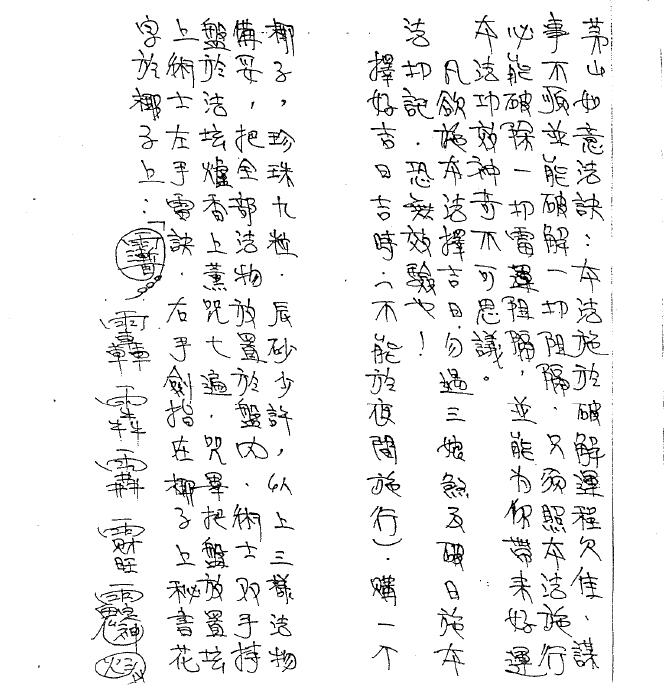 茅山如意法訣：本法施於破解運程欠佳．謀
事不順並能破解一切阻隔．只須照本法施行
必能破除一切雷運阻隔，並能为你帶来好運
本法功效神奇不可思議。
凡欲施本法擇吉日勿過三娘煞及破日施本
法切記．恐無效驗也！
擇好吉日吉時（不能於夜間施行）．購一个
椰子，珍珠九粒．辰砂少許，以上三樣法物
備妥，把全部法物放置於盤内．術士双手持
盤於法坛爐香上薰咒七遍．咒畢把盤放置坛
上術士左手雷訣．右手劍指在椰子上秘書花
字於椰子上：「